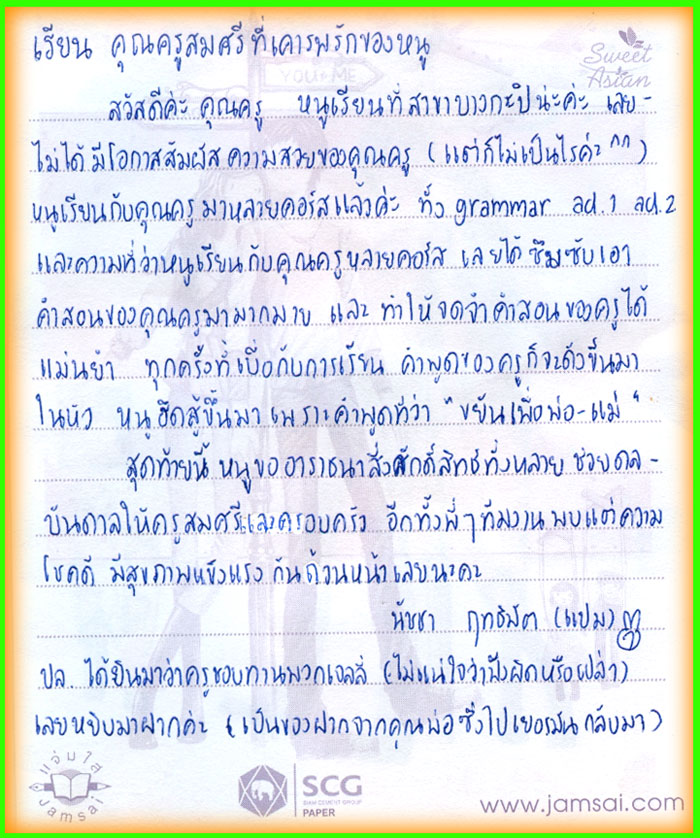 เรียน คุณครูสมศรีที่เคารพรักของหนู
Sweet
Asian
YOU & ME
สวัสดีค่ะ คุณครู หนูเรียนที่สาขาบางกะปิน่ะค่ะ เลย-
ไม่ได้มีโอกาสสัมผัสความสวยของคุณครู (แต่ก็ไม่เป็นไรค่ะ ^^)
หนูเรียนกับคุณครูมาหลายคอร์สแล้วค่ะ ทั้ง grammar ad.1 ad.2
และความที่ว่าหนูเรียนกับคุณครูหลายคอร์ส เลยได้ซึมซับเอา
คำสอนของคุณครูมามากมาย และ ทำให้จดจำคำสอนของครูได้
แม่นยำ ทุกครั้งที่เบื่อกับการเรียน คำพูดของครูก็จะดังขึ้นมา
ในหัว หนูฮึดสู้ขึ้นมาเพราะคำพูดที่ว่า "ขยันเพื่อพ่อ-แม่"
สุดท้ายนี้ หนูขออาราธนาสิ่งศักดิ์สิทธิ์ทั้งหลาย ช่วยดล-
บันดาลให้ครูสมศรีและครอบครัว อีกทั้งพี่ๆทีมงาน พบแต่ความ
โชคดี มีสุขภาพแข็งแรง กันถ้วนหน้าเลยนะคะ
นัชชา (แปม)
ปล. ได้ยินมาว่าครูชอบทานพวกเจลลี่ (ไม่แน่ใจว่าฟังผิดหรือเปล่า)
เลยหยิบมาฝากค่ะ (เป็นของฝากจากคุณพ่อซึ่งไปเยอรมันกลับมา)
แจ่มใส
Jamsai
SCG
SIAM CEMENT GROUP
PAPER
www.jamsai.com